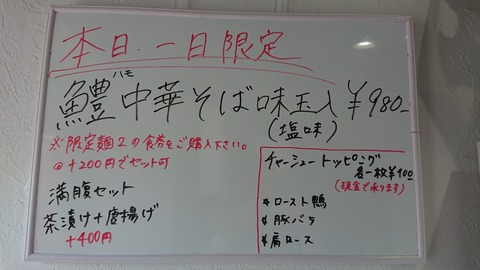 本日、一日限定
ハモ
鱧中華そば味玉入 ¥980-
(塩味)
※限定麺2の食券をご購入下さい。
@+200円でセット可
満腹セット
茶漬け+唐揚げ
+400円
チャーシュートッピング
各一枚¥100
(現金で承ります)
*ロースト鴨
*豚バラ
*肩ロース